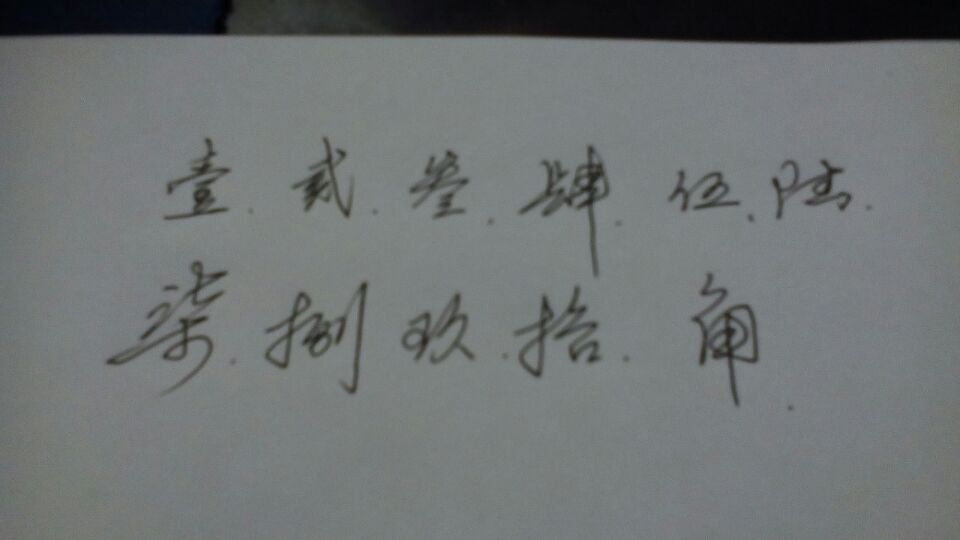 壹.贰.叁.肆.伍.陆.
柒.捌玖.拾.角.